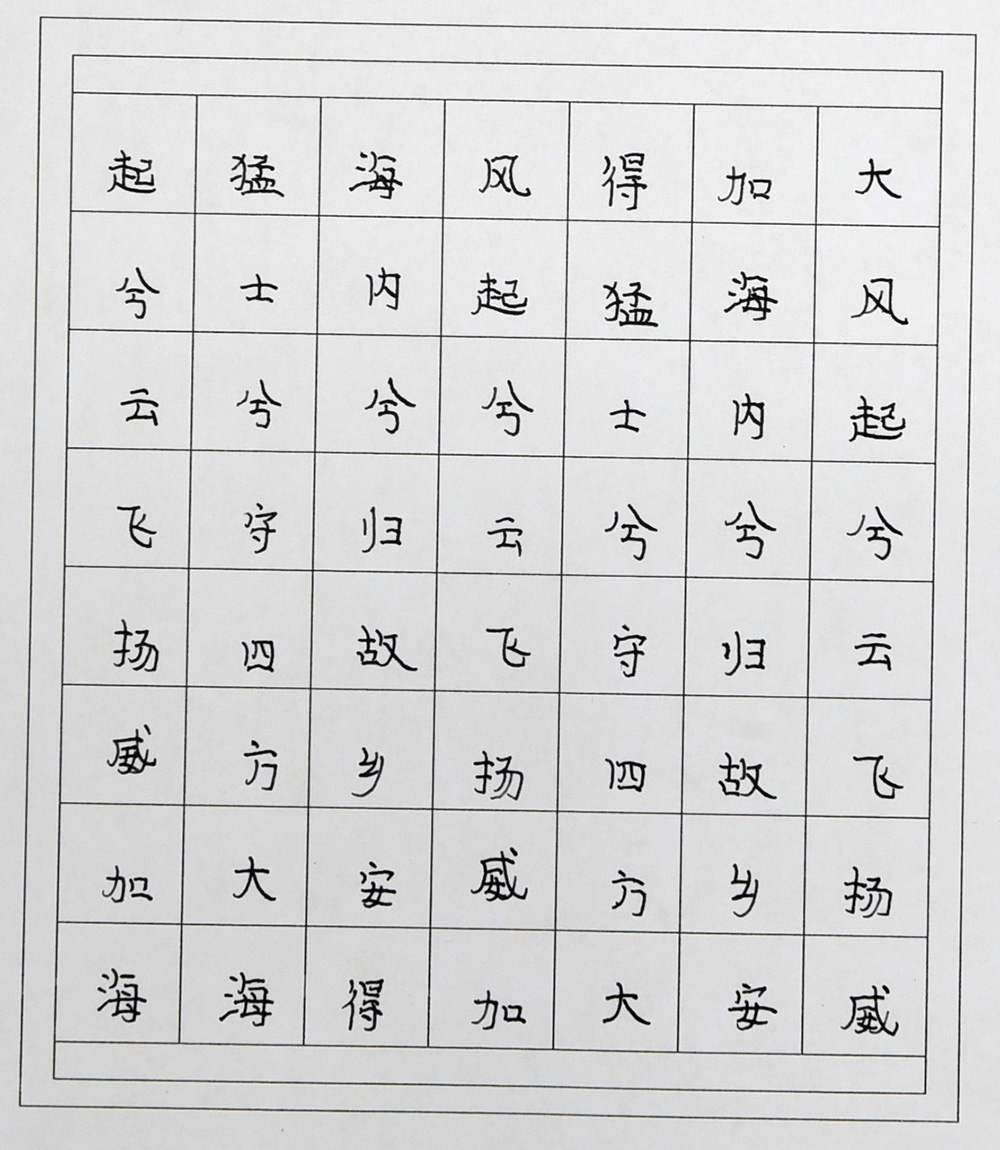 大风起兮云飞扬威
加海内兮归故乡安
得猛士兮守四方大
风起兮云飞扬威加
海内兮归故乡安得
猛士兮守四方大海
起兮云飞扬威加海